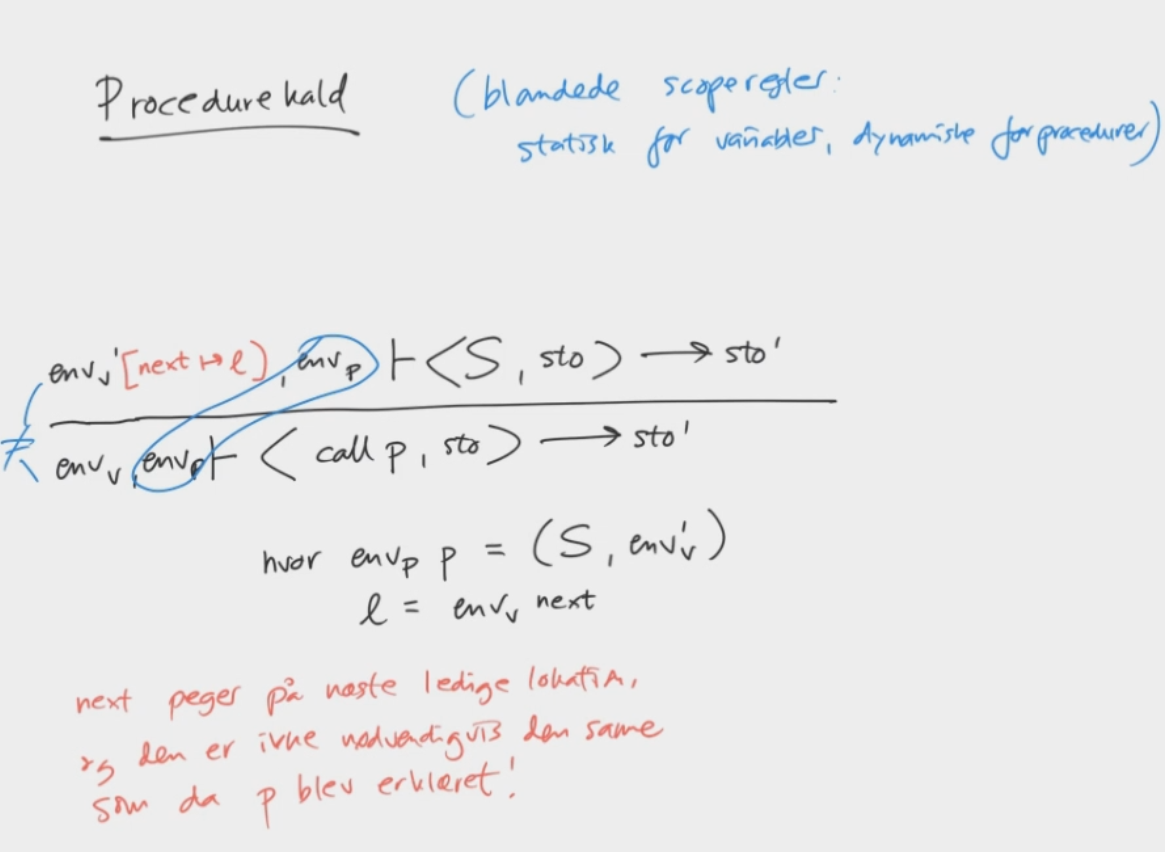 Procedurekald
(blandede scoperegler:
statisk for variabler, dynamiske for procedurer)
env_v'[next ↦ l], env_p ⊢ <S, sto> → sto'
≠
env_v, env_p ⊢ <call p, sto> → sto'
hvor env_p p = (S, env_v')
l = env_v next
next peger på næste ledige lokation,
og den er ikke nødvendigvis den samme
som da p blev erklæret!